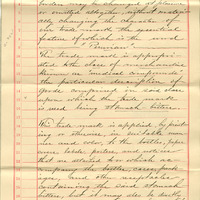 be changed at pleasure
or omitted altogether, without materi-
ally changing the character of
our trade mark the essential
feature of which is the word
" Peruvian"
The trade mark is appropri-
ated to the class of merchandise
known as medical compounds &
the particular description of
goods comprised in said class
upon which the trade mark
is used being Stomach bitters.
The trade mark is applied by print-
ing or otherwise, in suitable man-
ner and color, to the bottles, upon
some labels, posters and notices
that are attached to or which ac-
company the bottles, cases, pack-
ages, and other receptacles
containing the said stomach
bitters, but it may also be directly